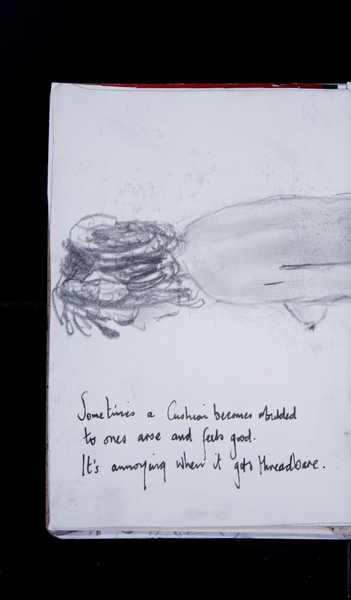 Sometimes a Cushion becomes moulded
to ones arse and feels good.
It's annoying when it gets threadbare.